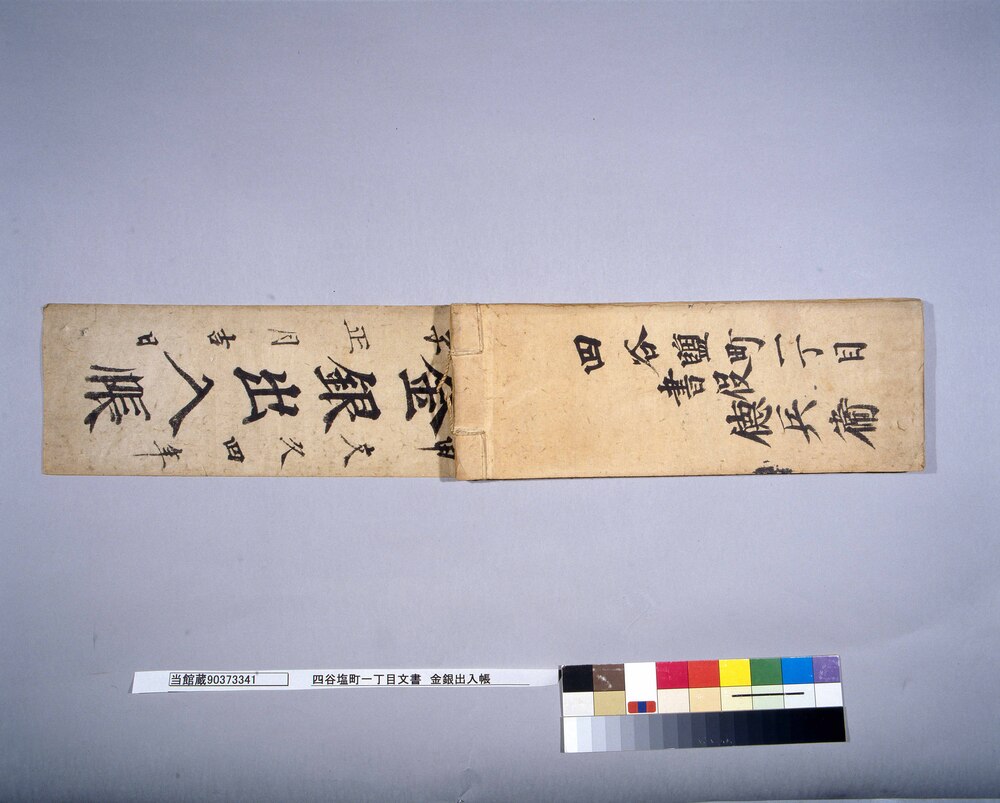 四谷鹽町一丁目
書役
德兵衛
甲文久四年
金銀出入帳
子正月吉日
当館蔵90373341 四谷塩町一丁目文書 金銀出入帳